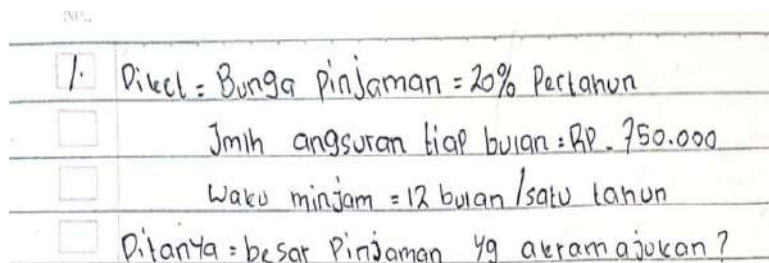 NO.
1. Diket = Bunga pinjaman = 20% Pertahun
Jmlh angsuran tiap bulan = RP. 750.000
Waku minjam = 12 bulan / satu tahun
Ditanya = besar Pinjaman yg akram ajukan?